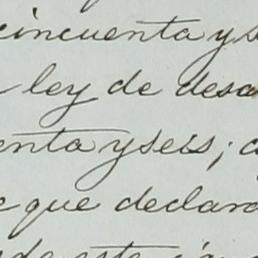 cincuenta y s
ley de desa
enta y seis; a
e que declara